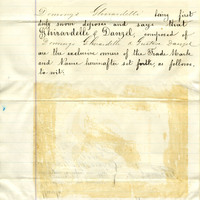 Domingo Ghirardelli being first
duly sworn deposes and says that
Ghirardelli & Danzel, composed of
Domingo Ghirardelli & Gustav Danzel
are the exclusive owners of the Trade Mark
and Name hereinafter set forth, as follows,
to wit: